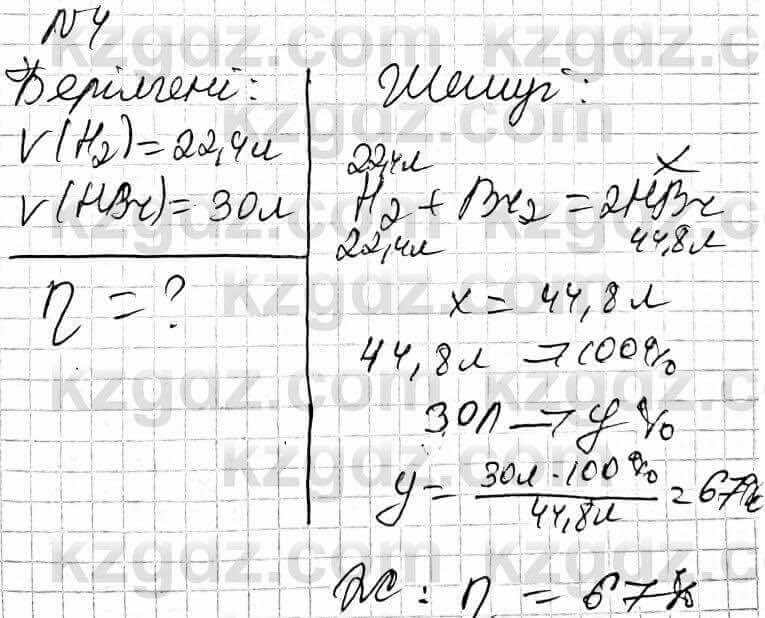 №4
Берілгені:
V(H₂)=22,4л
V(HBr)=30л
η=?
Шешуі:
22,4л x
H₂ + Br₂ = 2HBr
22,4л 44,8л
x = 44,8л
44,8л → 100%
30л → y%
y = 30л · 100% / 44,8л = 67%
Ж: η = 67%
kzgdz.com